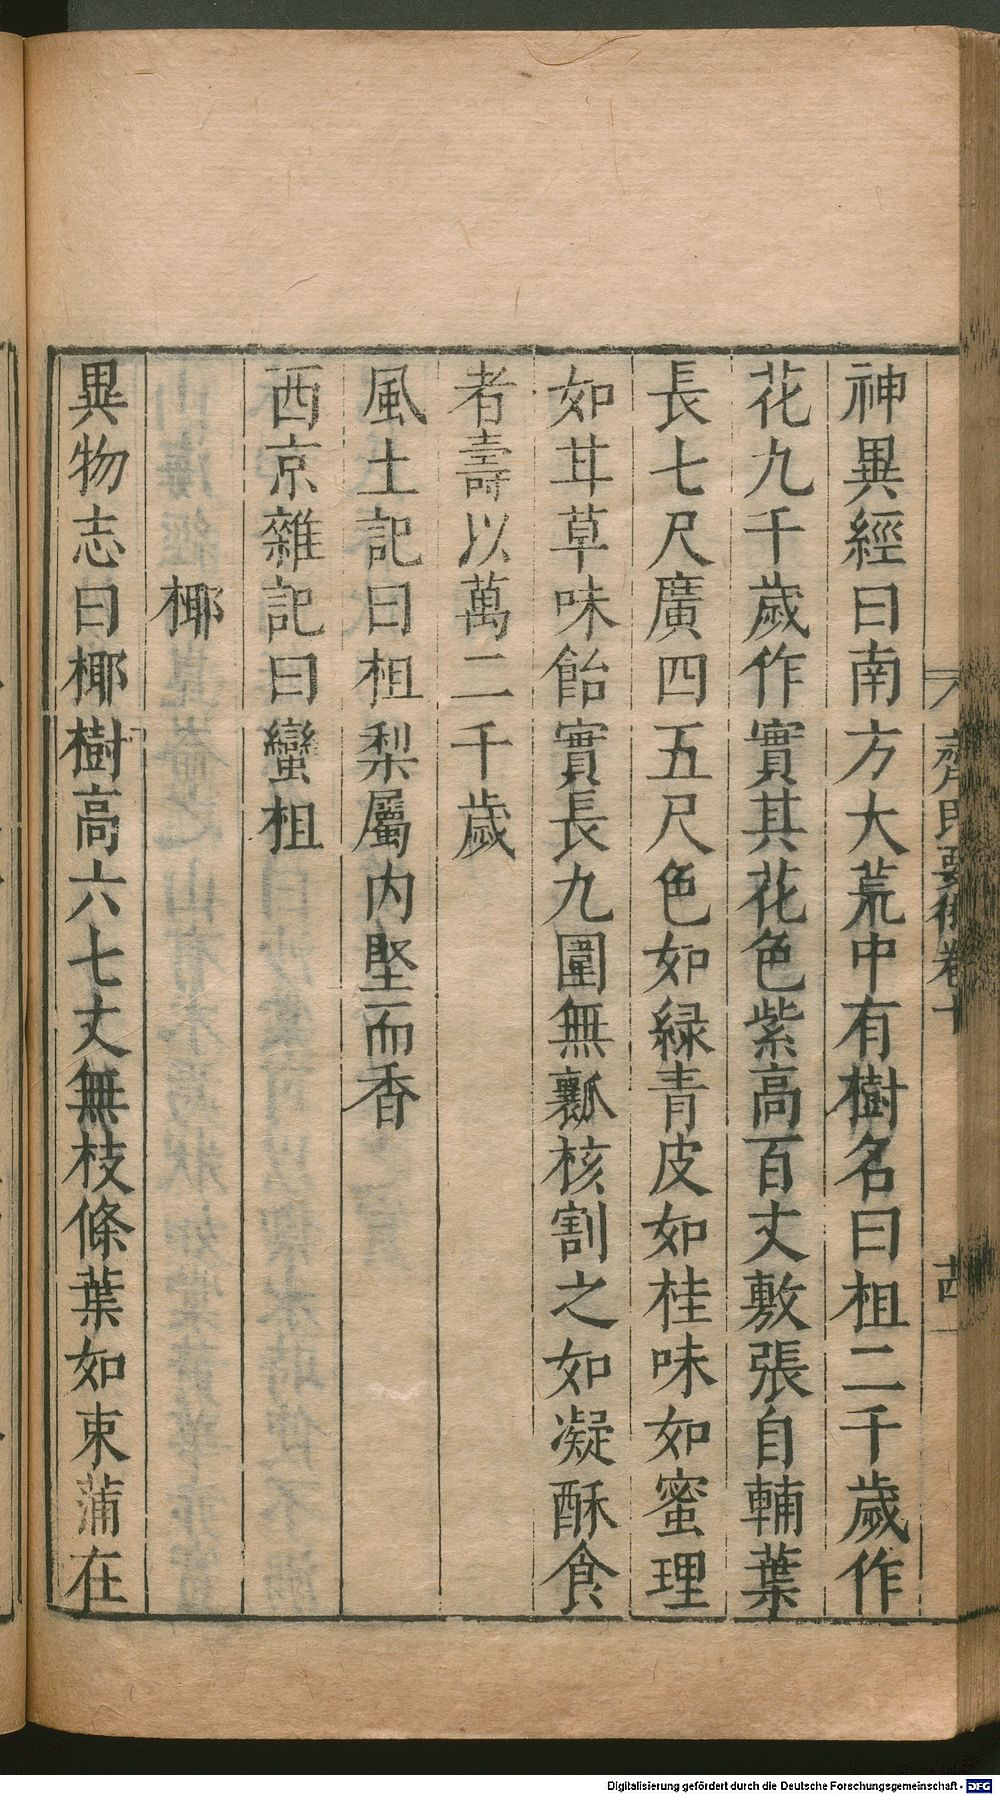 齊民要術卷十
神異經曰南方大荒中有樹名曰柤二千歲作
花九千歲作實其花色紫高百丈敷張自輔葉
長七尺廣四五尺色如緑青皮如桂味如蜜理
如苷草味飴實長九圍無瓤核割之如凝酥食
者壽以萬二千歲
風土記曰柤梨屬内堅而香
西京雜記曰蠻柤
椰
異物志曰椰樹高六七丈無枝條葉如束蒲在
Digitalisierung gefördert durch die Deutsche Forschungsgemeinschaft - DFG